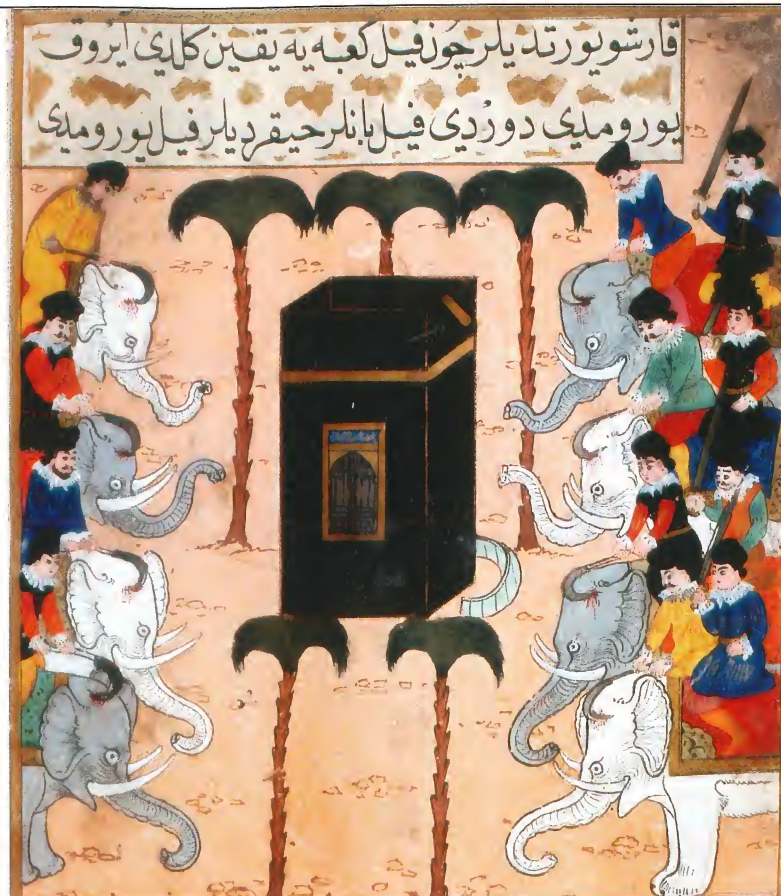 قارشو يورتديلر چون فيل كعبه يه يقين كلدي ايروق
يورومدي دوردي فيل بانلر حيقرديلر فيل يورومدي